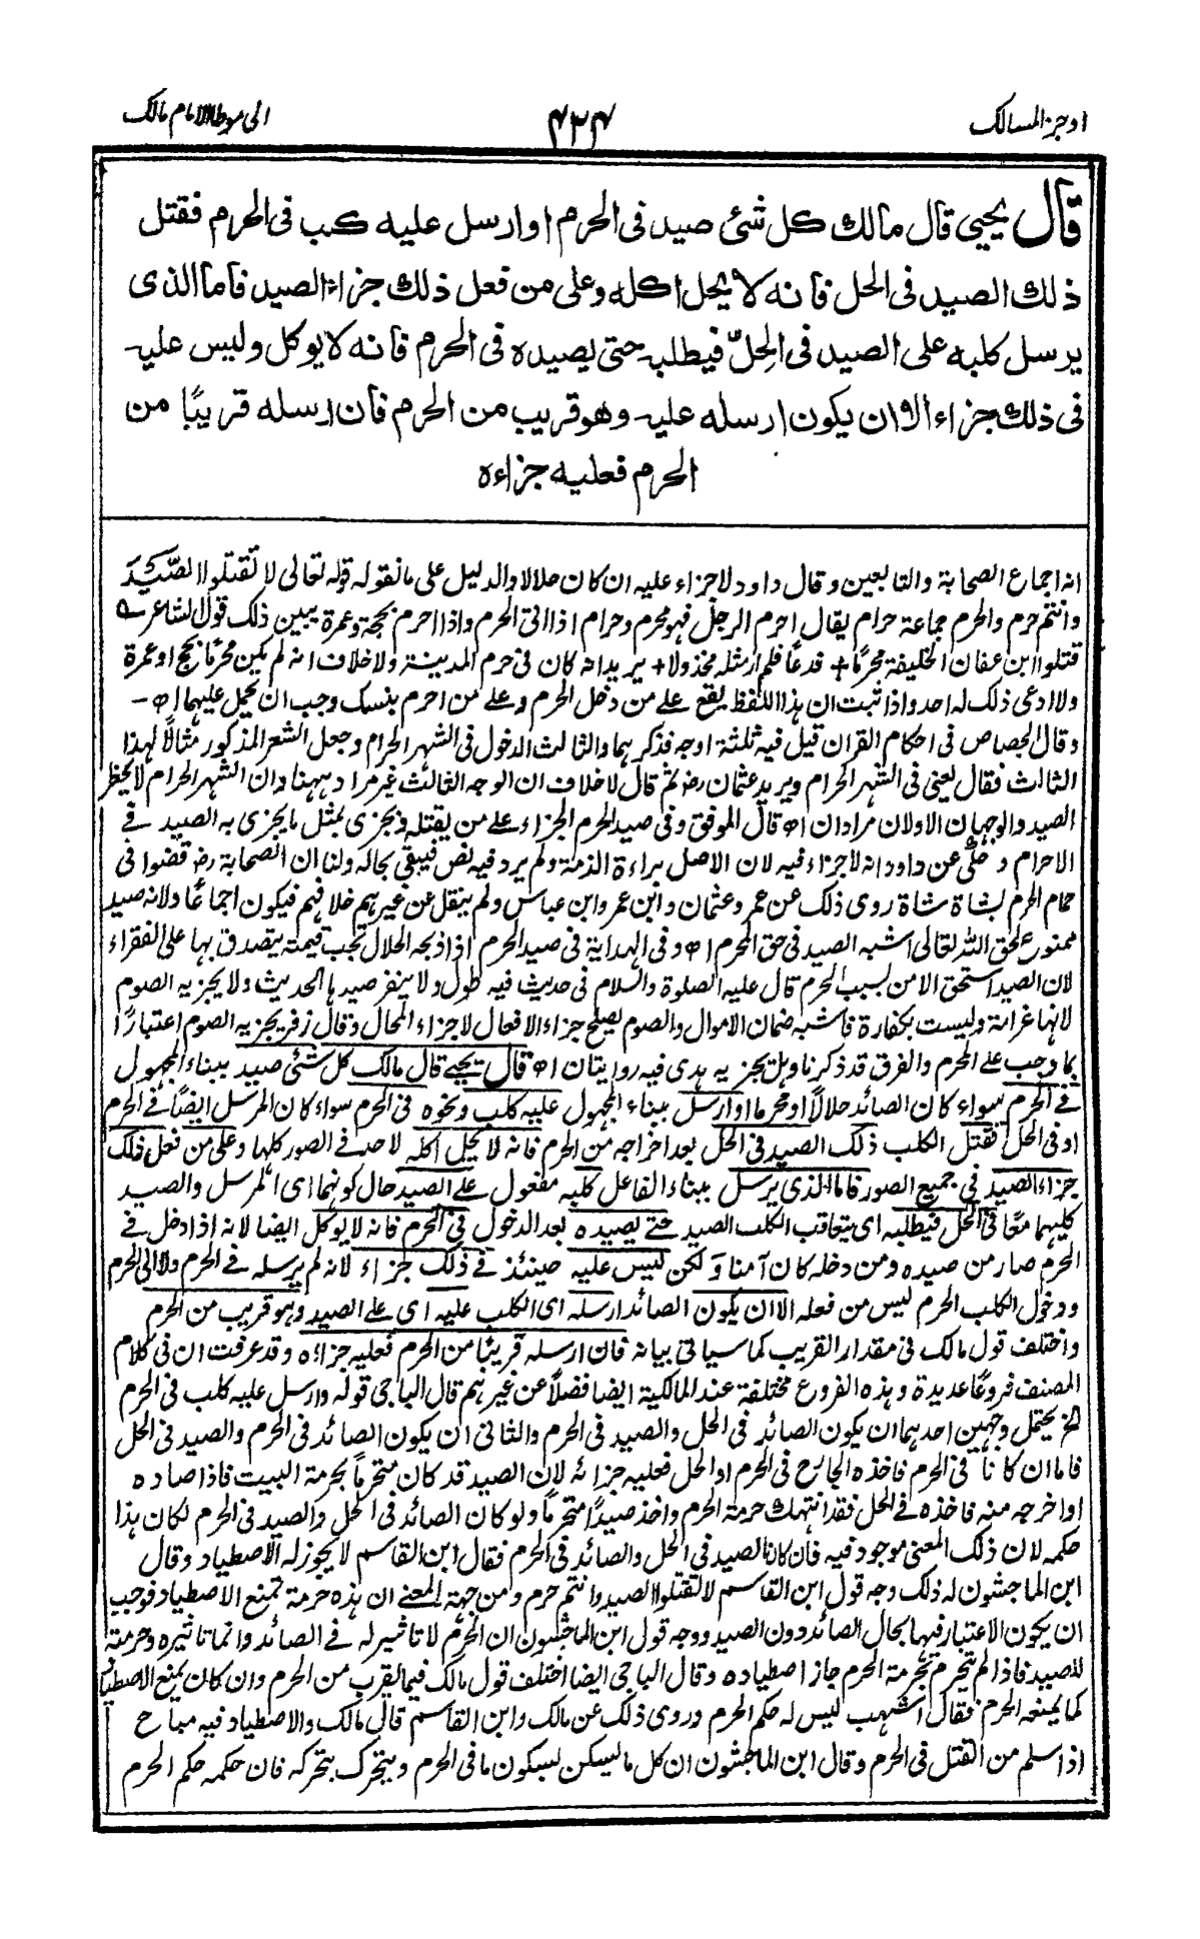 اوجز المسالك
۴۲۴
الى موطا الامام مالك
قال يحيى قال مالك كل شئ صيد فى الحرم اوارسل عليه كلب فى الحرم فقتل
ذلك الصيد فى الحل فانه لا يحل اكله وعلى من فعل ذلك جزاء الصيد فاما الذى
يرسل كلبه على الصيد فى الحِلّ فيطلبه حتى يصيده فى الحرم فانه لا يوكل وليس عليه
فى ذلك جزاء الا ان يكون ارسله عليه وهو قريب من الحرم فان ارسله قريبًا من
الحرم فعليه جزاءه
انه اجماع الصحابة والتابعين وقال داود لا جزاء عليه ان كان حلالا والدليل على ما نقوله قوله تعالى لا تقتلوا الصَّيْدَ
وانتم حرم والحرم جماعة حرام يقال احرم الرجل فهو محرم وحرام اذا اتى الحرم واذا احرم بحجة وعمرة يبين ذلك قول الشاعر ؎
قتلوا ابن عفان الخليفة محرمًا + فدعا فلم ار مثله مخذولا + يريد انه كان فى حرم المدينة ولا خلاف انه لم يكن محرمًا بحج او عمرة
ولا ادعى ذلك له احد واذا ثبت ان هذا اللفظ يقع على من دخل الحرم وعلى من احرم بنسك وجب ان يحمل عليهما اھ -
وقال الجصاص فى احكام القران قيل فيه ثلثة اوجه فذكرهما والثالث الدخول فى الشهر الحرام وجعل الشعر المذكور مثالًا لهذا
الثالث فقال يعنى فى الشهر الحرام ويريد عثمان رض ثم قال لا خلاف ان الوجه الثالث غير مراد ههنا وان الشهر الحرام لا يحظر
الصيد والوجهان الاولان مرادان اھ قال الموفق وفى صيد الحرم الجزاء على من يقتله ويجزى بمثل ما يجزى به الصيد فى
الاحرام وحكى عن داود انه لا جزاء فيه لان الاصل براءة الذمة ولم يرد فيه نص فيبقى بحاله ولنا ان الصحابة رض قضوا فى
حمام الحرم بشاة شاة روى ذلك عن عمر وعثمان وابن عمر وابن عباس ولم ينقل عن غيرهم خلافهم فيكون اجماعًا ولانه صيد
ممنوع لحق الله تعالى اشبه الصيد فى حق المحرم اھ وفى الهداية فى صيد الحرم اذا ذبحه الحلال تجب قيمته يتصدق بها على الفقراء
لان الصيد استحق الامن بسبب الحرم قال عليه الصلوة والسلام فى حديث فيه طول ولا ينفر صيدها الحديث ولا يجزيه الصوم
لانها غرامة وليست بكفارة فاشبه ضمان الاموال والصوم يصلح جزاء الافعال لا جزاء المحال وقال زفر يجزيه الصوم اعتبارًا
بما وجب على المحرم والفرق قد ذكرنا وهل يجزيه هدى فيه روايتان اھ قال يحيى قال مالك كل شئ صيد ببناء المجهول
فى الحرم سواء كان الصائد حلالًا او محرما او ارسل ببناء المجهول عليه كلب ونحوه فى الحرم سواء كان المرسل ايضًا فى الحرم
او فى الحل فقتل الكلب ذلك الصيد فى الحل بعد اخراجه من الحرم فانه لا يحل اكله لاحد فى الصور كلها وعلى من فعل ذلك
جزاء الصيد فى جميع الصور فاما الذى يرسل ببناء الفاعل كلبه مفعول على الصيد حال كونهما اى المرسل والصيد
كليهما معًا فى الحل فيطلبه اى يتعاقب الكلب الصيد حتى يصيده بعد الدخول فى الحرم فانه لا يوكل ايضا لانه اذا دخل فى
الحرم صار من صيده ومن دخله كان آمنا وَلكن ليس عليه حينئذ فى ذلك جزاء لانه لم يرسله فى الحرم ولا الى الحرم
ودخول الكلب الحرم ليس من فعله الا ان يكون الصائد ارسله اى الكلب عليه اى على الصيد وهو قريب من الحرم
واختلف قول مالك فى مقدار القريب كما سياتى بيانه فان ارسله قريبًا من الحرم فعليه جزاءه وقد عرفت ان فى كلام
المصنف فروعًا عديدة وهذه الفروع مختلفة عند المالكية ايضا فضلًا عن غيرهم قال الباجى قوله وارسل عليه كلب فى الحرم
الخ يحتمل وجهين احدهما ان يكون الصائد فى الحل والصيد فى الحرم والثانى ان يكون الصائد فى الحرم والصيد فى الحل
فاما ان كانا فى الحرم فاخذه الجارح فى الحرم او الحل فعليه جزائه لان الصيد قد كان متحرمًا بحرمة البيت فاذا صاده
او اخرجه منه فاخذه فى الحل فقد انتهك حرمة الحرم واخذ صيدًا متحرمًا ولو كان الصائد فى الحل والصيد فى الحرم لكان هذا
حكمه لان ذلك المعنى موجود فيه فان كان الصيد فى الحل والصائد فى الحرم فقال ابن القاسم لا يجوز له الاصطياد وقال
ابن الماجشون له ذلك وجه قول ابن القاسم لا تقتلوا الصيد وانتم حرم ومن جهة المعنى ان هذه حرمة تمنع الاصطياد فوجب
ان يكون الاعتبار فيها بحال الصائد دون الصيد ووجه قول ابن الماجشون ان الحرم لا تاثير له فى الصائد وانما تاثيره وحرمته
للصيد فاذا لم يتحرم بحرمة الحرم جاز اصطياده وقال الباجى ايضا اختلف قول مالك فيما يقرب من الحرم وان كان يمنع الاصطياد
كما يمنعه الحرم فقال اشهب ليس له حكم الحرم وروى ذلك عن مالك وابن القاسم قال مالك والاصطياد فيه مباح
اذا سلم من القتل فى الحرم وقال ابن الماجشون ان كل ما يسكن بسكون ما فى الحرم ويتحرك بتحركه فان حكمه حكم الحرم